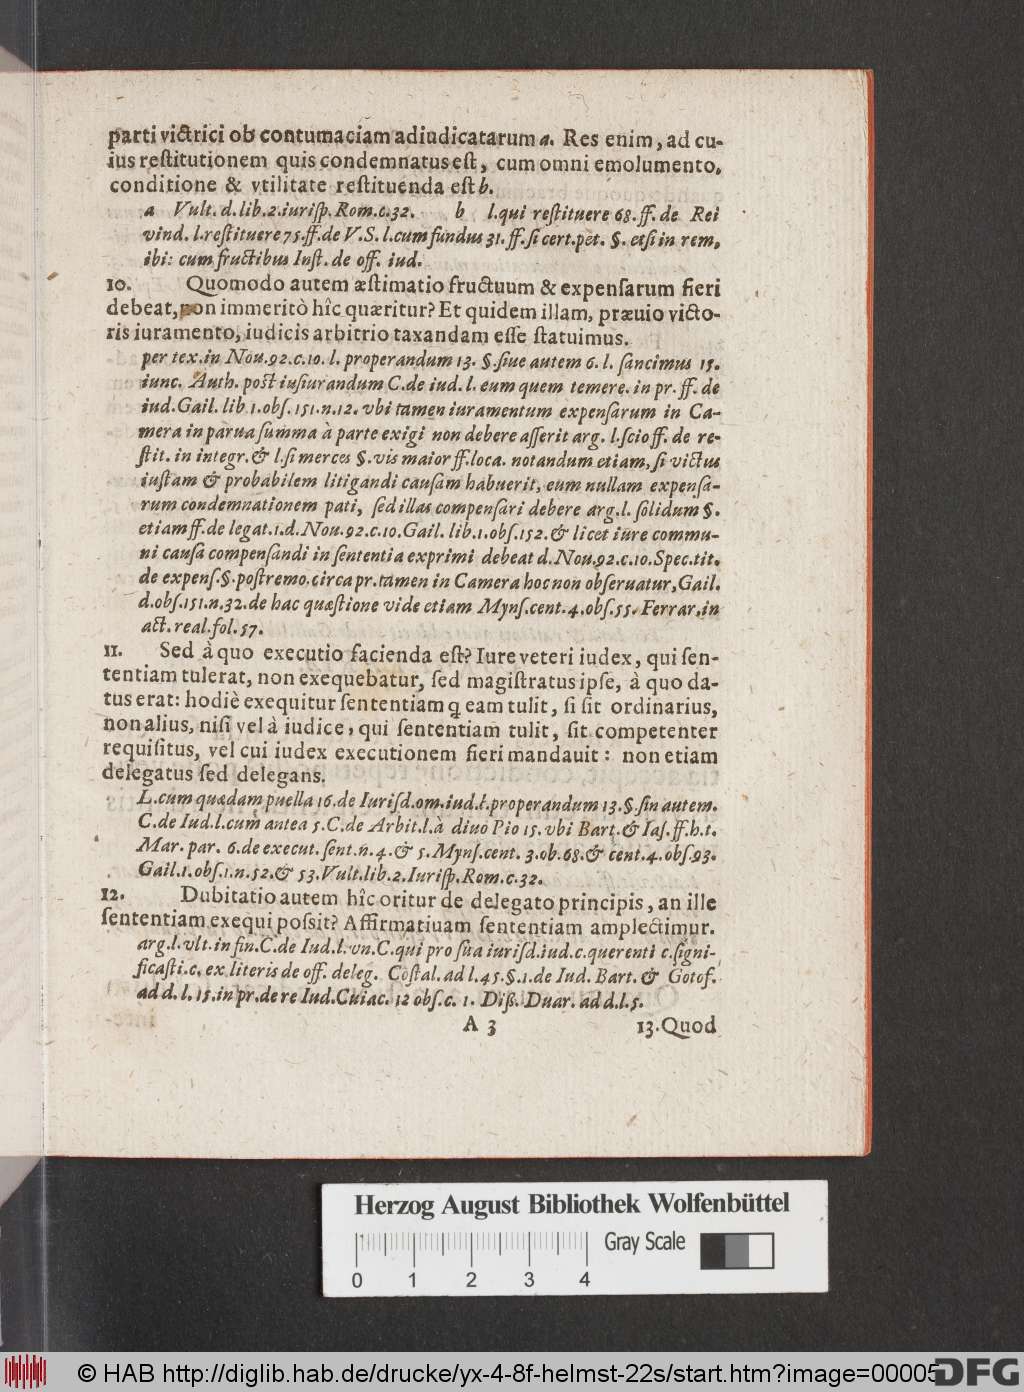 parti victrici ob contumaciam adiudicatarum a. Res enim, ad cu-
ius reſtitutionem quis condemnatus eſt, cum omni emolumento,
conditione & vtilitate reſtituenda eſt b.
a Vult. d. lib. 2. iuriſp. Rom. c. 32. b l. qui reſtituere 68. ff. de Rei
vind. l. reſtituere 75. ff. de V. S. l. cum fundus 31. ff. ſi cert. pet. §. etſi in rem,
ibi: cum fructibus Inſt. de off. iud.
10. Quomodo autem æſtimatio fructuum & expenſarum fieri
debeat, non immeritò hîc quæritur? Et quidem illam, præuio victo-
ris iuramento, iudicis arbitrio taxandam eſſe ſtatuimus.
per tex. in Nou. 92. c. 10. l. properandum 13. §. ſiue autem 6. l. ſancimus 15.
iunc. Auth. poſt iuſiurandum C. de iud. l. eum quem temere. in pr. ff. de
iud. Gail. lib 1. obſ. 151. n. 12. vbi tamen iuramentum expenſarum in Ca-
mera in parua ſumma à parte exigi non debere aſſerit arg. l. ſcio ff. de re-
ſtit. in integr. & l. ſi merces §. vis maior ff. loca. notandum etiam, ſi victus
iuſtam & probabilem litigandi cauſam habuerit, eum nullam expenſa-
rum condemnationem pati, ſed illas compenſari debere arg. l. ſolidum §.
etiam ff. de legat. 1. d. Nou. 92. c. 10. Gail. lib. 1. obſ. 152. & licet iure commu-
ni cauſa compenſandi in ſententia exprimi debeat d. Nou. 92. c. 10. Spec. tit.
de expenſ. §. poſtremo. circa pr. tamen in Camera hoc non obſeruatur, Gail.
d. obſ. 151. n. 32. de hac quæſtione vide etiam Mynſ. cent. 4. obſ. 55. Ferrar. in
act. real. fol. 57.
11. Sed à quo executio facienda eſt? Iure veteri iudex, qui ſen-
tentiam tulerat, non exequebatur, ſed magiſtratus ipſe, à quo da-
tus erat: hodiè exequitur ſententiam q eam tulit, ſi ſit ordinarius,
non alius, niſi vel à iudice, qui ſententiam tulit, ſit competenter
requiſitus, vel cui iudex executionem fieri mandauit: non etiam
delegatus ſed delegans.
L. cum quædam puella 16. de Iuriſd. om. iud. l. properandum 13. §. ſin autem.
C. de Iud. l. cum antea 5. C. de Arbit. l. à diuo Pio 15. vbi Bart. & Iaſ. ff. h. t.
Mar. par. 6. de execut. ſent. n. 4. & 5. Mynſ. cent. 3. ob. 68. & cent. 4. obſ. 93.
Gail. 1. obſ. 1. n. 52. & 53. Vult. lib. 2. Iuriſp. Rom. c. 32.
12. Dubitatio autem hîc oritur de delegato principis, an ille
ſententiam exequi poſsit? Affirmatiuam ſententiam amplectimur.
arg. l. vlt. in fin. C. de Iud. l. vn. C. qui pro ſua iuriſd. iud. c. querenti c. ſigni-
ficaſti. c. ex literis de off. deleg. Coſtal. ad l. 45. §. 1. de Iud. Bart. & Gotof.
ad d. l. 15. in pr. de re Iud. Cuiac. 12 obſ. c. 1. Diſſ. Duar. ad d. l. 5.
A 3 13. Quod
Herzog August Bibliothek Wolfenbüttel
Gray Scale
0 1 2 3 4
© HAB http://diglib.hab.de/drucke/yx-4-8f-helmst-22s/start.htm?image=00005
DFG